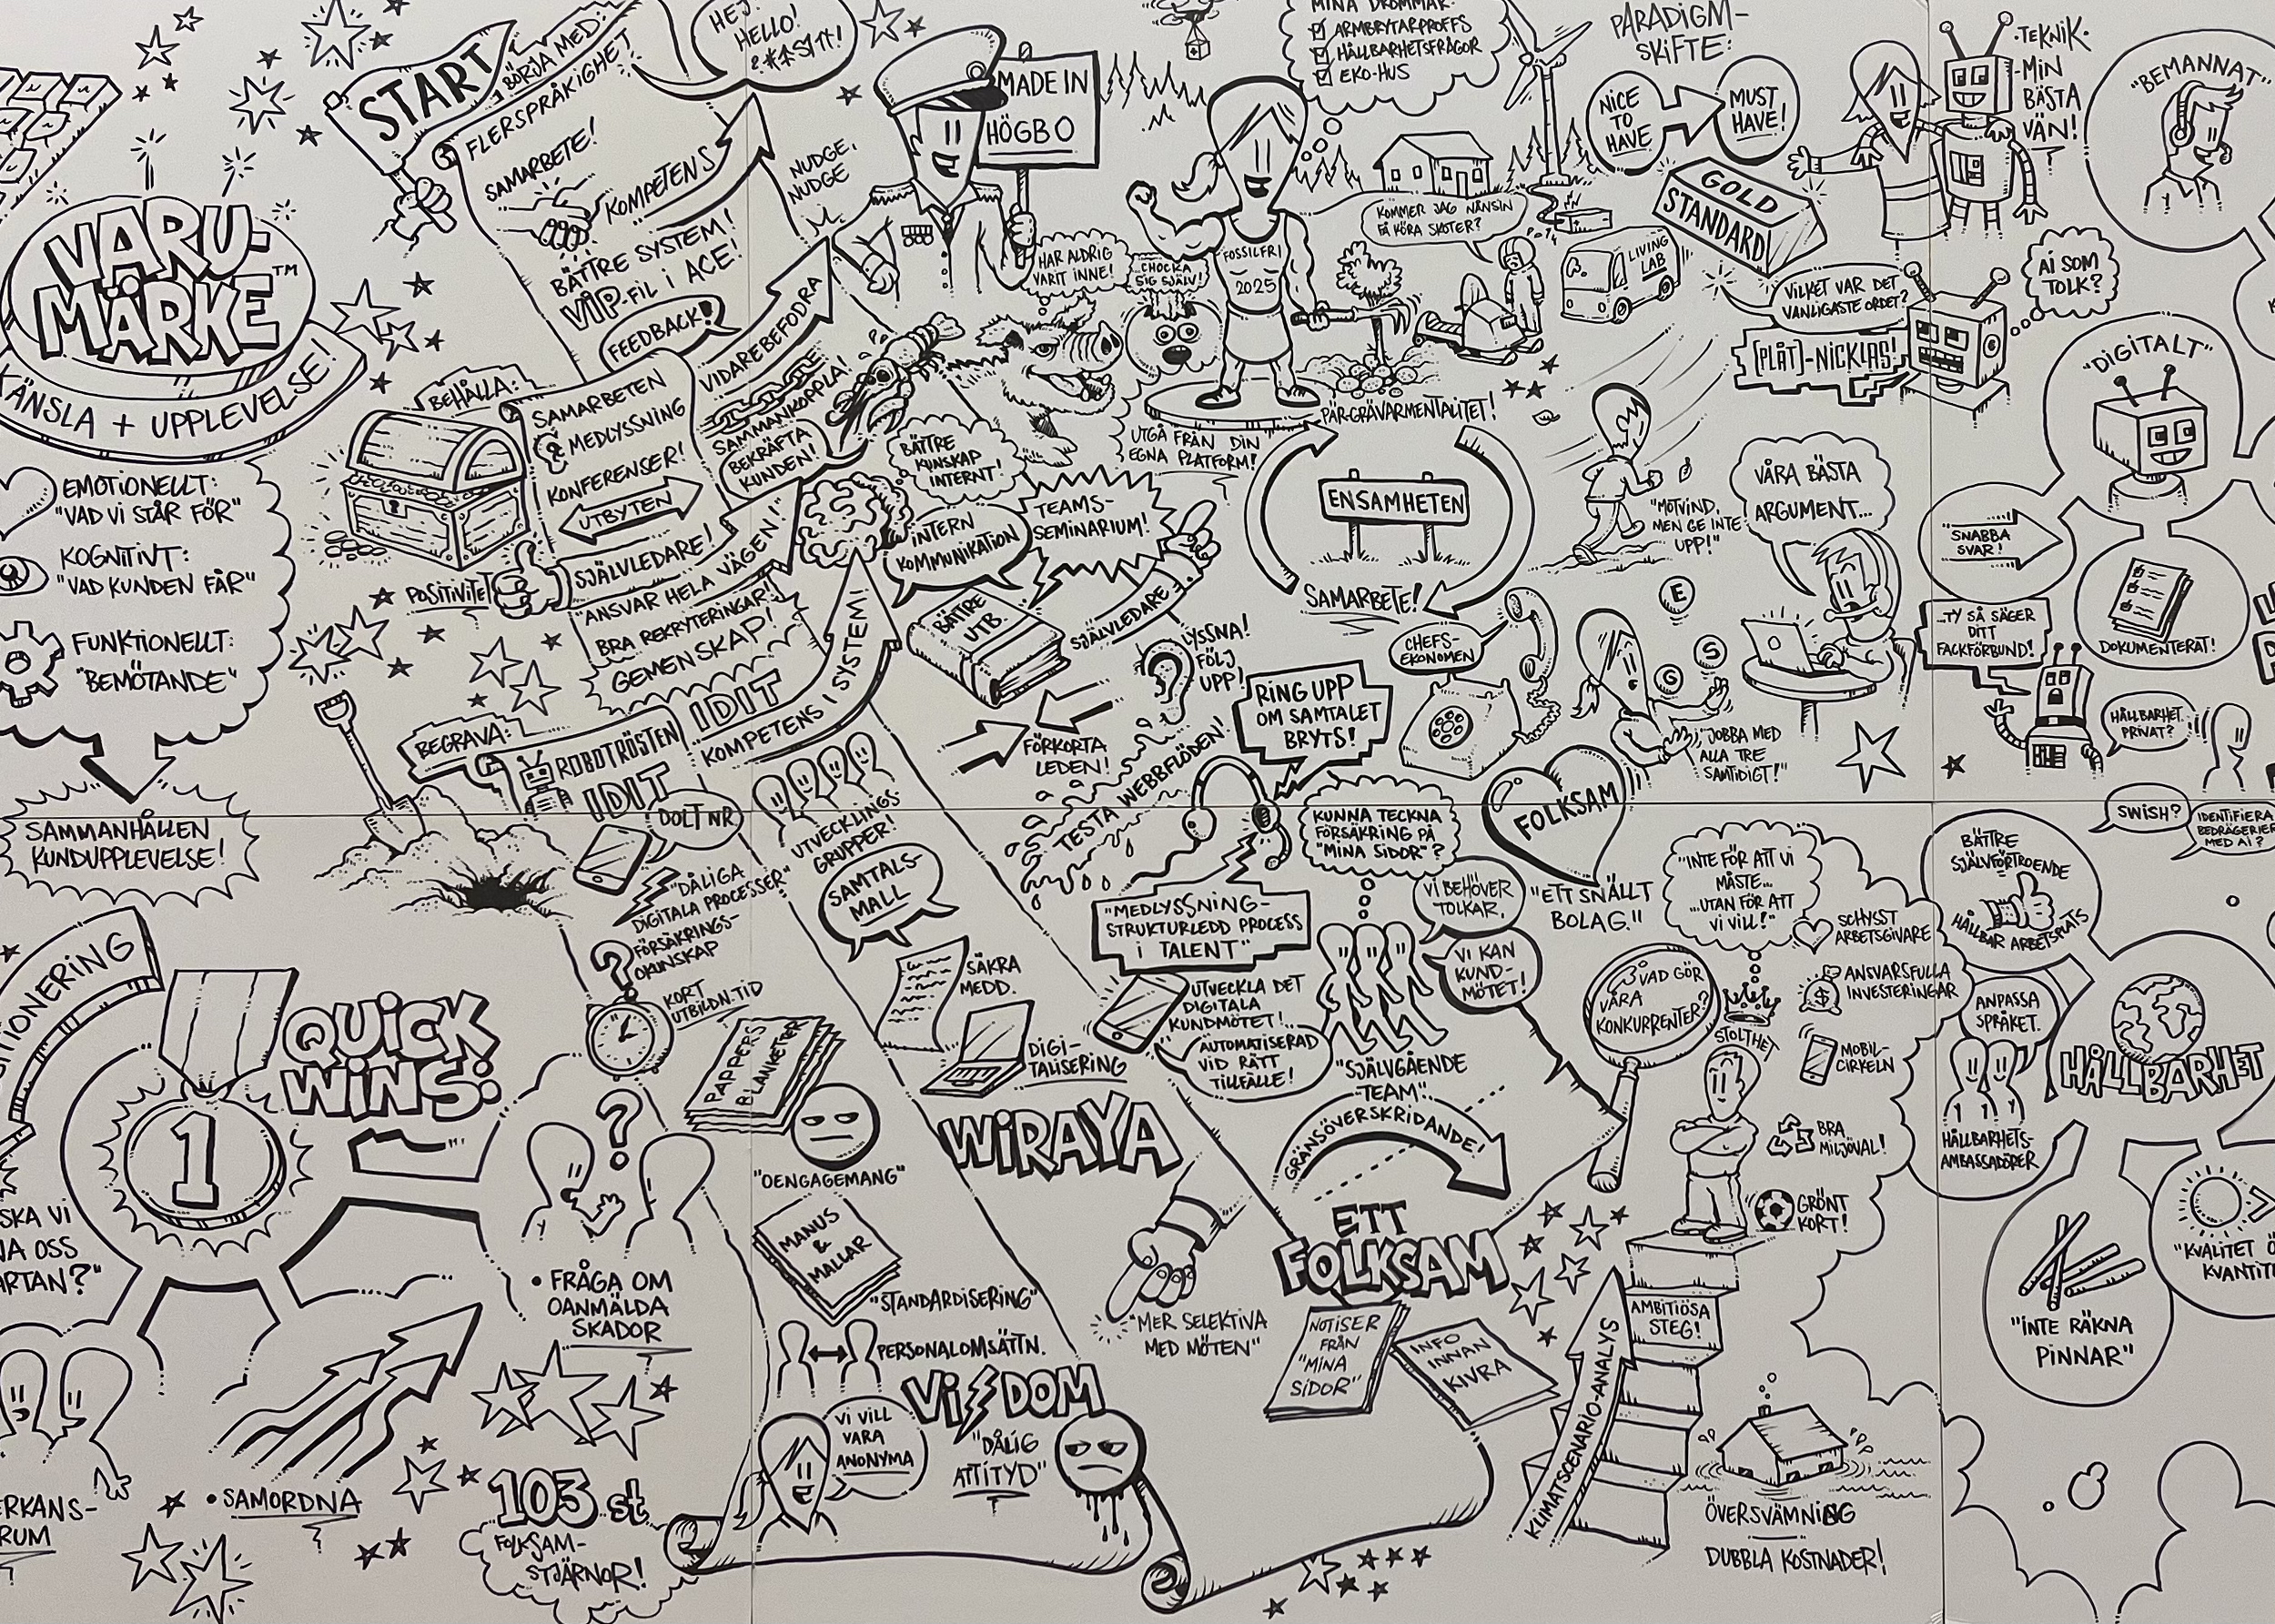 VARU-
MÄRKE™
KÄNSLA + UPPLEVELSE!
EMOTIONELLT:
"VAD VI STÅR FÖR"
KOGNITIVT:
"VAD KUNDEN FÅR"
FUNKTIONELLT:
"BEMÖTANDE"
SAMMANHÅLLEN
KUNDUPPLEVELSE!
QUICK
WINS:
1
SKA VI
OSS
• SAMORDNA
• FRÅGA OM
OANMÄLDA
SKADOR
103 st
FOLKSAM-
STJÄRNOR!
START
BÖRJA MED:
FLERSPRÅKIGHET
HEJ!
HELLO!
SAMARBETE!
KOMPETENS
BÄTTRE SYSTEM!
VIP-FIL I ACE!
FEEDBACK!
NUDGE,
NUDGE
VIDAREBEFODRA
BEHÅLLA:
SAMARBETEN
MEDLYSSNING
KONFERENSER!
UTBYTEN
SAMMANKOPPLA!
BEKRÄFTA
KUNDEN!
POSITIVITET
SJÄLVLEDARE!
"ANSVAR HELA VÄGEN!"
BRA REKRYTERINGAR!
GEMENSKAP!
BEGRAVA:
ROBOTRÖSTEN
IDIT
IDIT
KOMPETENS I SYSTEM!
DOLT NR
"DÅLIGA
DIGITALA PROCESSER"
FÖRSÄKRINGS-
OKUNSKAP
KORT
UTBILDN.TID
PAPPERS
BLANKETTER
"OENGAGEMANG"
MANUS
&
MALLAR
"STANDARDISERING"
PERSONALOMSÄTTN.
VI VILL
VARA
ANONYMA
VISDOM
"DÅLIG
ATTITYD"
UTVECKLINGS-
GRUPPER!
SAMTALS-
MALL
SÄKRA
MEDD.
DIGI-
TALISERING
WIRAYA
MADE IN
HÖGBO
HAR ALDRIG
VARIT INNE!
CHOCKA
SIG SJÄLV!
BÄTTRE
KUNSKAP
INTERNT!
INTERN
KOMMUNIKATION
TEAMS-
SEMINARIUM!
BÄTTRE
UTB.
SJÄLVLEDARE
LYSSNA!
FÖLJ
UPP!
FÖRKORTA
LEDEN!
TESTA WEBBFLÖDEN!
RING UPP
OM SAMTALET
BRYTS!
"MEDLYSSNING-
STRUKTURLEDD PROCESS
I TALENT"
UTVECKLA DET
DIGITALA
KUNDMÖTET!
AUTOMATISERAD
VID RÄTT
TILLFÄLLE!
"MER SELEKTIVA
MED MÖTEN"
MINA DRÖMMAR:
ARMBRYTARPROFFS
HÅLLBARHETSFRÅGOR
EKO-HUS
FOSSILFRI
2025
KOMMER JAG NÅNSIN
FÅ KÖRA SKOTER?
UTGÅ FRÅN DIN
EGNA PLATFORM!
PÄR-GRÄVARMENTALITET!
ENSAMHETEN
SAMARBETE!
CHEFS-
EKONOMEN
KUNNA TECKNA
FÖRSÄKRING PÅ
"MINA SIDOR"?
VI BEHÖVER
TOLKAR.
VI KAN
KUND-
MÖTET!
"SJÄLVGÅENDE
TEAM"
GRÄNSÖVERSKRIDANDE!
ETT
FOLKSAM
NOTISER
FRÅN
"MINA
SIDOR"
INFO
INNAN
KIVRA
PARADIGM-
SKIFTE:
NICE
TO
HAVE
MUST
HAVE!
GOLD
STANDARD!
LIVING
LAB
•TEKNIK•
-MIN
BÄSTA
VÄN!
VILKET VAR DET
VANLIGASTE ORDET?
[PLÅT]-NICKLAS!
AI SOM
TOLK?
"MOTVIND,
MEN GE INTE
UPP!"
VÅRA BÄSTA
ARGUMENT...
E
S
G
"JOBBA MED
ALLA TRE
SAMTIDIGT!"
FOLKSAM
"ETT SNÄLLT
BOLAG."
"INTE FÖR ATT VI
MÅSTE...
...UTAN FÖR ATT
VI VILL!"
VAD GÖR
VÅRA
KONKURRENTER?
STOLTHET
SCHYSST
ARBETSGIVARE
ANSVARSFULLA
INVESTERINGAR
MOBIL-
CIRKELN
BRA
MILJÖVAL!
GRÖNT
KORT!
AMBITIÖSA
STEG!
KLIMATSCENARIO-ANALYS
ÖVERSVÄMNING
DUBBLA KOSTNADER!
"BEMANNAT"
"DIGITALT"
SNABBA
SVAR!
DOKUMENTERAT!
...TY SÅ SÄGER
DITT
FACKFÖRBUND!
HÅLLBARHET
PRIVAT?
SWISH?
IDENTIFIERA
BEDRÄGERIER
MED AI?
BÄTTRE
SJÄLVFÖRTROENDE
HÅLLBAR ARBETSPLATS
ANPASSA
SPRÅKET.
HÅLLBARHETS-
AMBASSADÖRER
HÅLLBARHET
"INTE RÄKNA
PINNAR"
"KVALITET